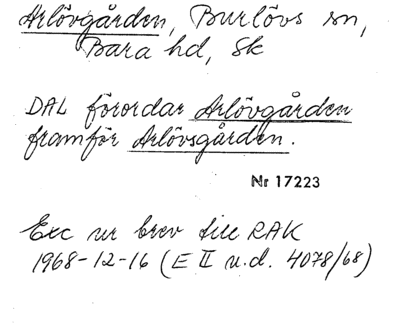 Arlövgården, Burlövs sn,
Bara hd, Sk
DAL förordar Arlövgården
framför Arlövsgården.
Nr 17223
Exc ur brev till RAK
1968-12-16 (E II u.d. 4078/68)